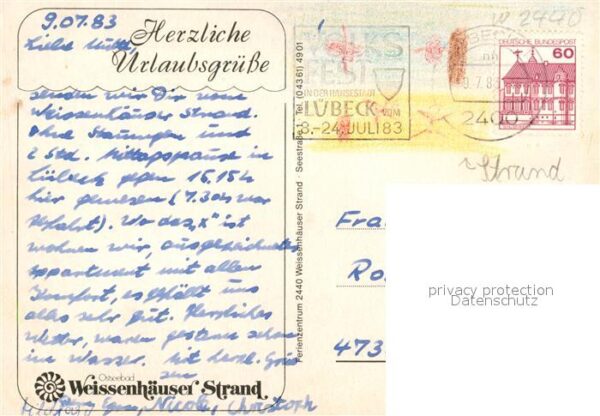 9.07.83
Liebe Mutti,
Herzliche
Urlaubsgrüße
senden wir Dir vom
Weissenhäuser Strand.
Ohne Stauungen und
2 Std. Mittagspause in
Lübeck gegen 16,15 h
hier gewesen (7.30 h war
Abfahrt). Wo das „x" ist
wohnen wir, ausgezeichnetes
Appartment mit allem
Komfort, es gefällt uns
alles sehr gut. Herrliches
Wetter, waren gestern schon
im Wasser. Mit herzl. Grüs
sen
Nicole, Christoph
Ostseebad
Weissenhäuser Strand
Ferienzentrum 2440 Weissenhäuser Strand · Seestraße 1 · Tel. (04361) 4901
VOLKS
FEST
IN DER HANSESTADT
LÜBECK VOM
8.-24. JULI 83
2400
DEUTSCHE BUNDESPOST
60
W 2440
Strand
Fra
Ro
473
privacy protection
Datenschutz